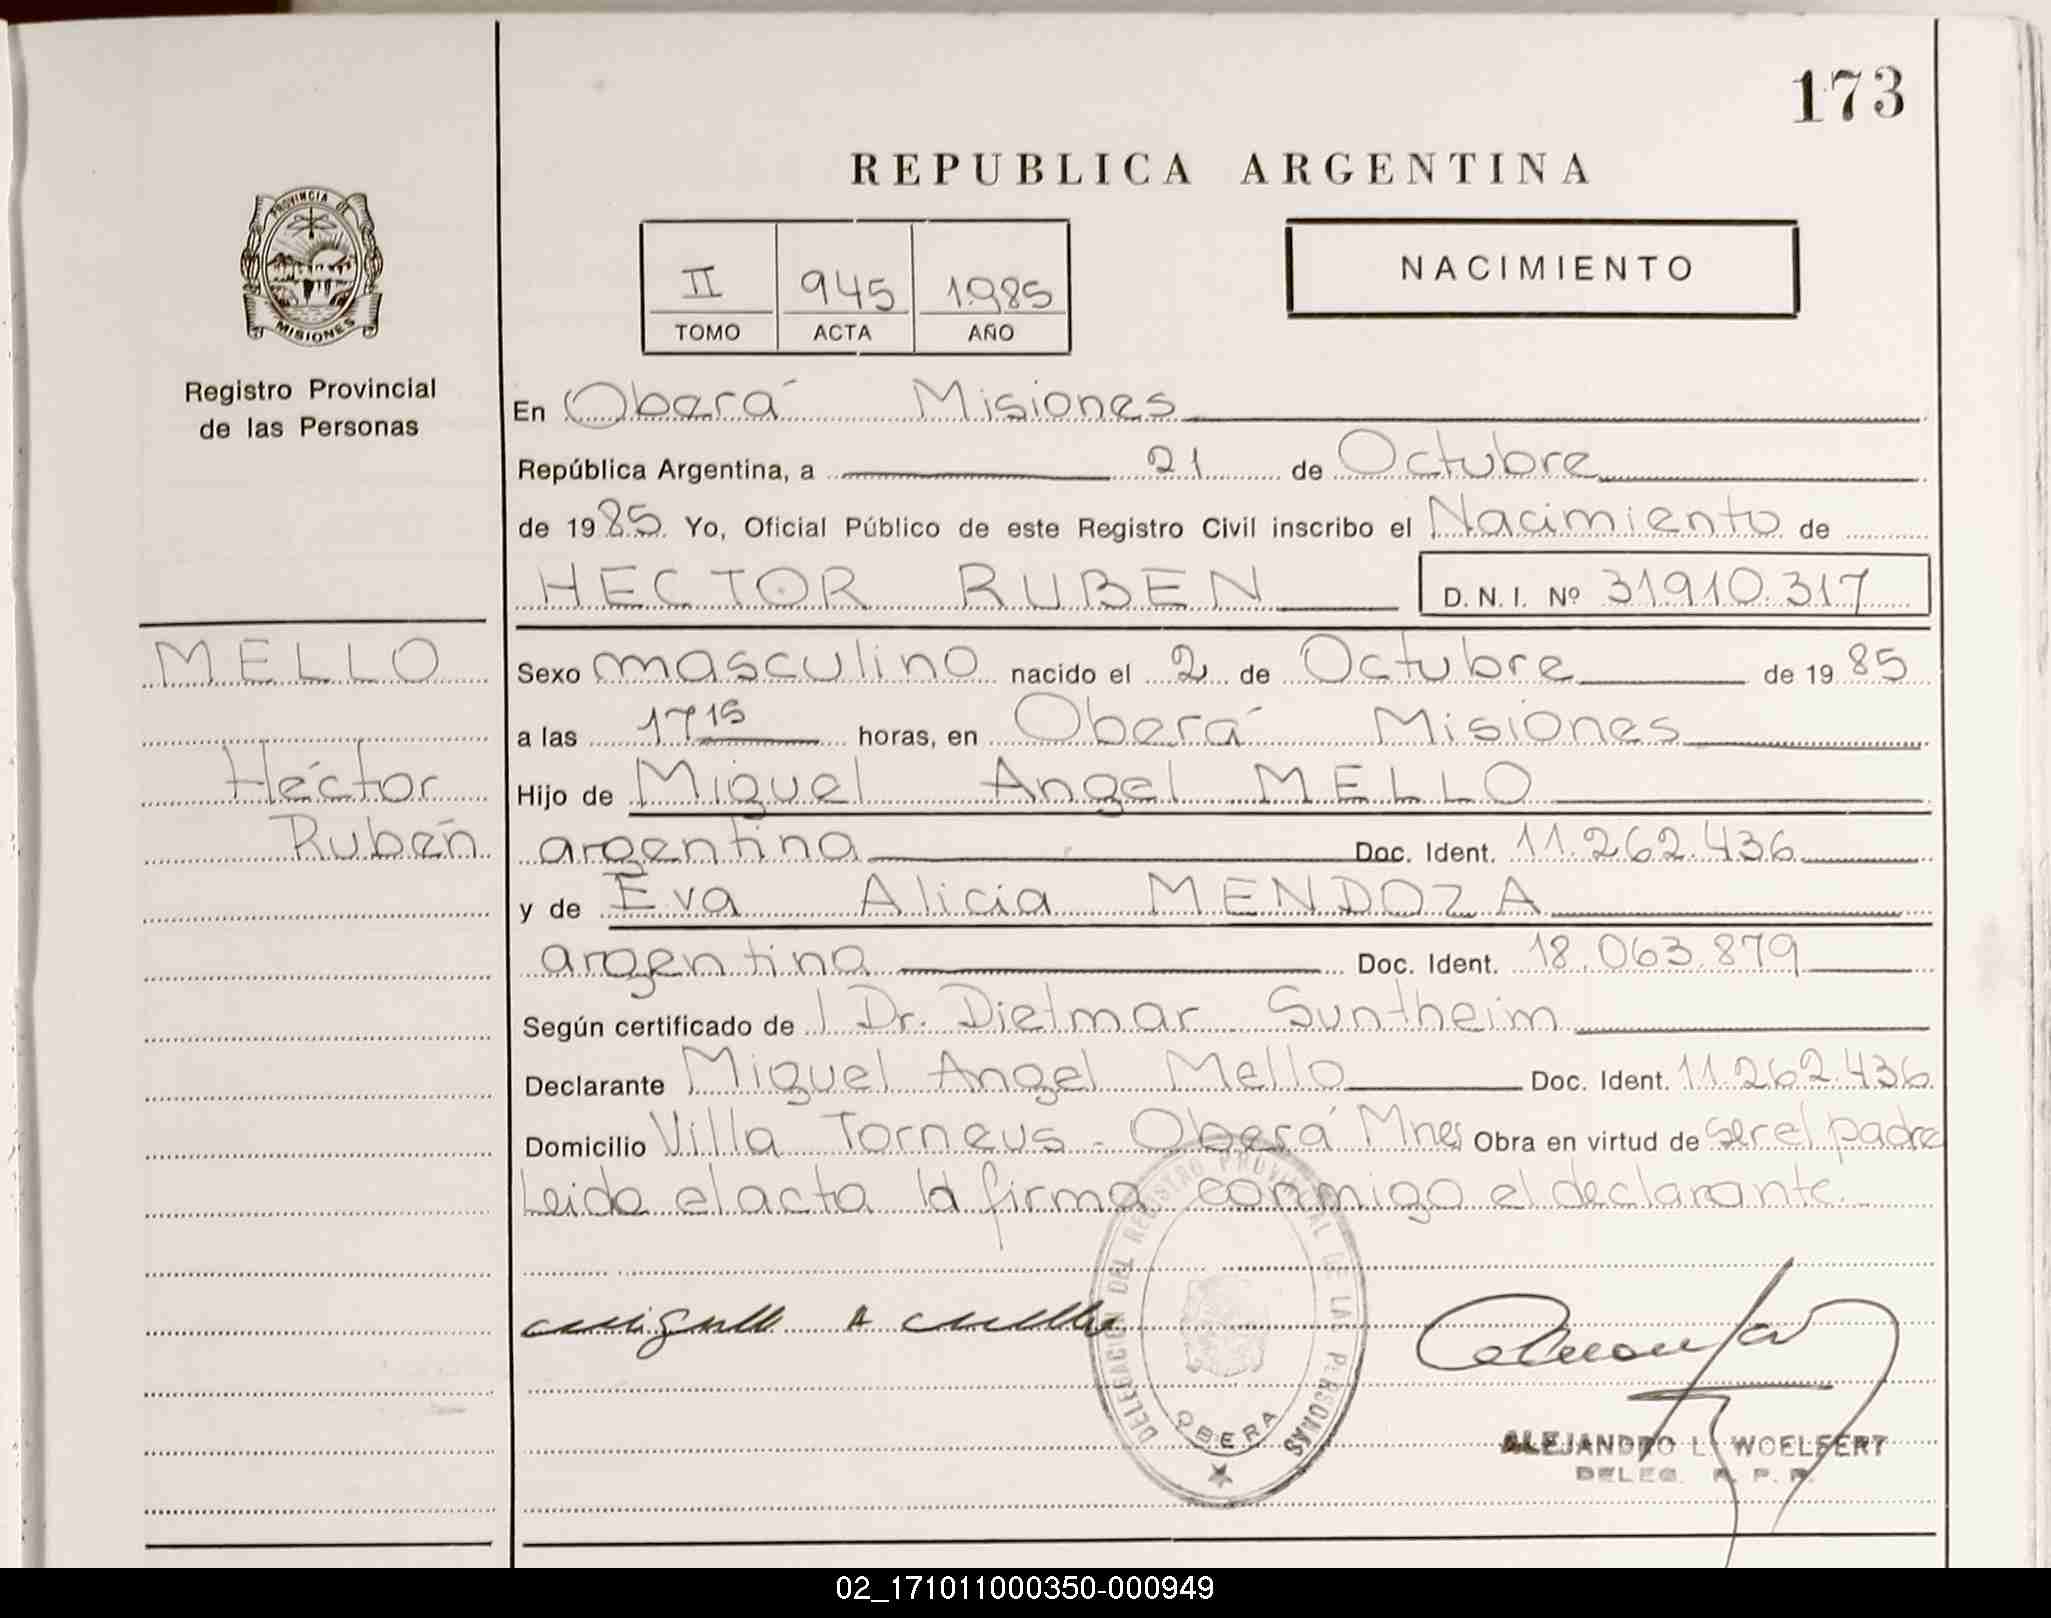 173
REPUBLICA ARGENTINA
PROVINCIA DE
MISIONES
Registro Provincial
de las Personas
II 945 1985
TOMO ACTA AÑO
NACIMIENTO
En Oberá Misiones
República Argentina, a 21 de Octubre
de 1985. Yo, Oficial Público de este Registro Civil inscribo el Nacimiento de
HECTOR RUBEN D.N.I. Nº 31910.317
MELLO
Héctor
Rubén
Sexo masculino nacido el 2 de Octubre de 1985
a las 17 15 horas, en Oberá Misiones
Hijo de Miguel Angel MELLO
argentina Doc. Ident. 11.262.436
y de Eva Alicia MENDOZA
argentina Doc. Ident. 18.063.879
Según certificado de Dr. Dietmar Suntheim
Declarante Miguel Angel Mello Doc. Ident. 11.262.436
Domicilio Villa Torneus - Oberá Mnes Obra en virtud de ser el padre
Leida el acta la firma conmigo el declarante.
DELEGACION DEL REGISTRO PROVINCIAL DE LAS PERSONAS
OBERA
Miguel A Mello
ALEJANDRO L. WOELFERT
DELEG. R. P. P.
02_171011000350-000949